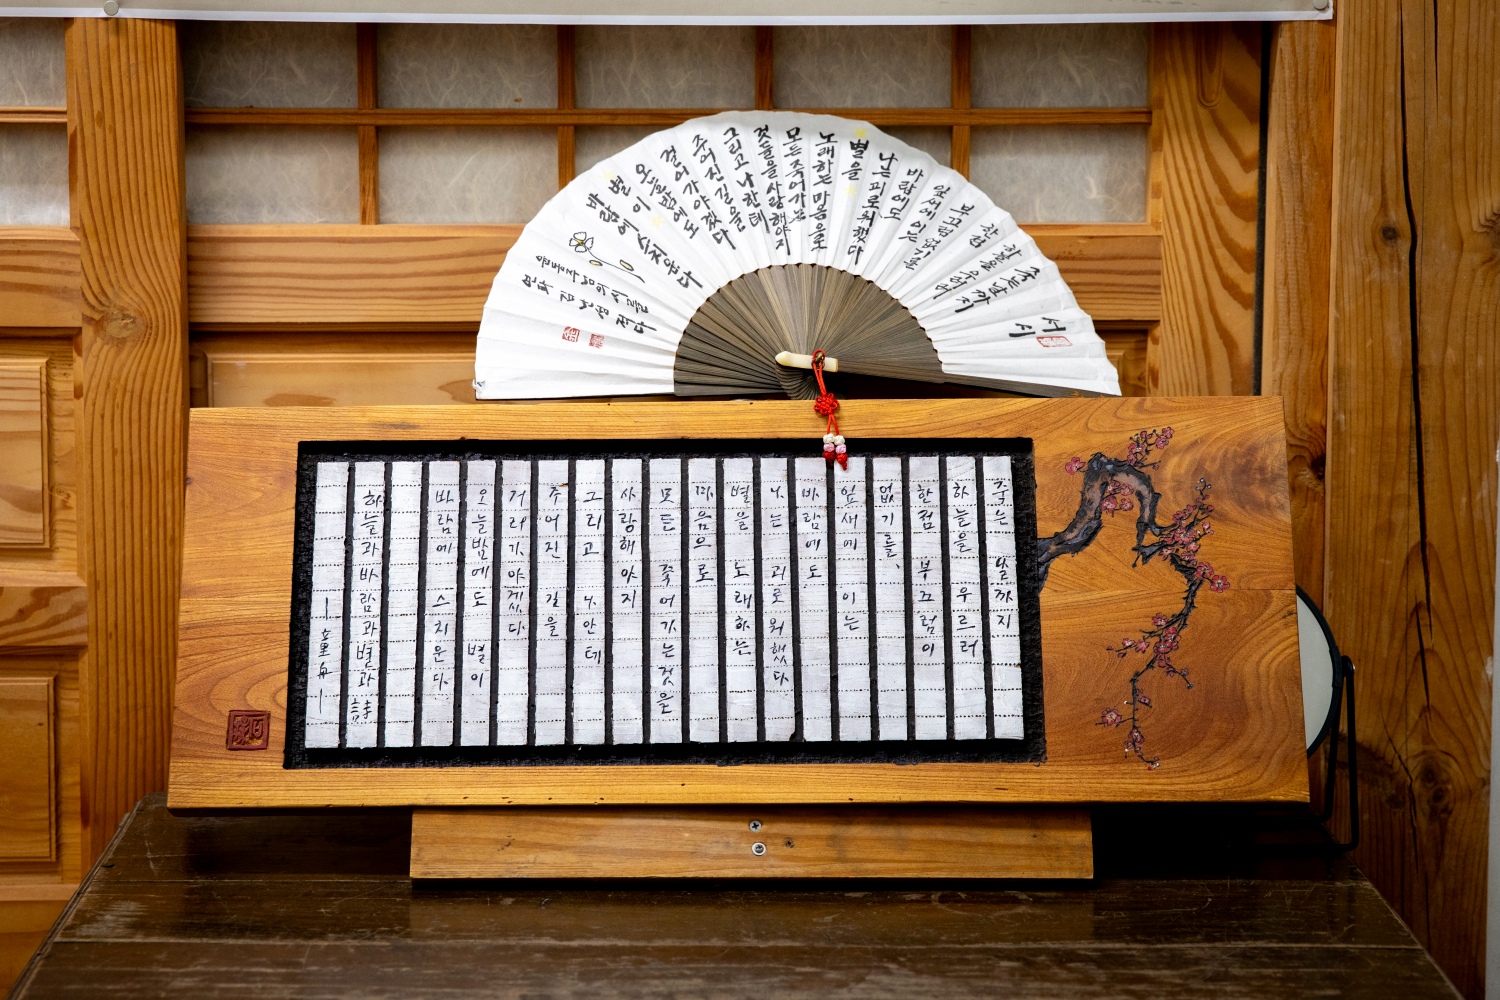 서시
죽는날까지
하늘을 우러러
한점
부끄럼 없기를
잎새에 이는
바람에도
나는 괴로워했다
별을
노래하는 마음으로
모든 죽어가는
것들을 사랑해야지
그리고 나한테
주어진 길을
걸어가야겠다
오늘밤에도
별이
바람에 스치운다
윤동주님의 시를
적다
죽는 날까지
하늘을 우르러
한점 부끄럼이
없기를,
잎새에 이는
바람에도
나는 괴로워했다
별을 노래하는
마음으로
모든 죽어가는것을
사랑해야지
그리고 나안테
주어진 길을
거러가야겠다
오늘밤에도 별이
바람에 스치운다
하늘과 바람과 별과 詩
ㅡ童舟ㅡ